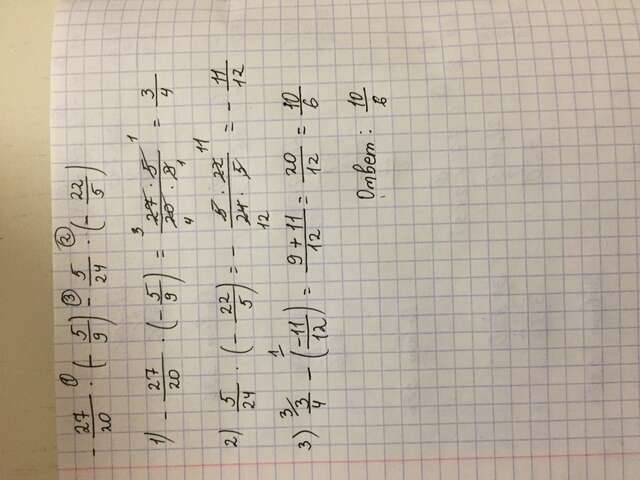 ① ③ ②
- 27/20 · (- 5/9) - 5/24 · (- 22/5)
1) - 27/20 · (- 5/9) = 3 27 · 5 1 / 4 20 · 9 1 = 3/4
2) 5/24 · (- 22/5) = - 5 · 22 11 / 12 24 · 5 = - 11/12
3) 3/ 3/4 - 1/ (-11/12) = 9 + 11/12 = 20/12 = 10/6
Ответ: 10/6